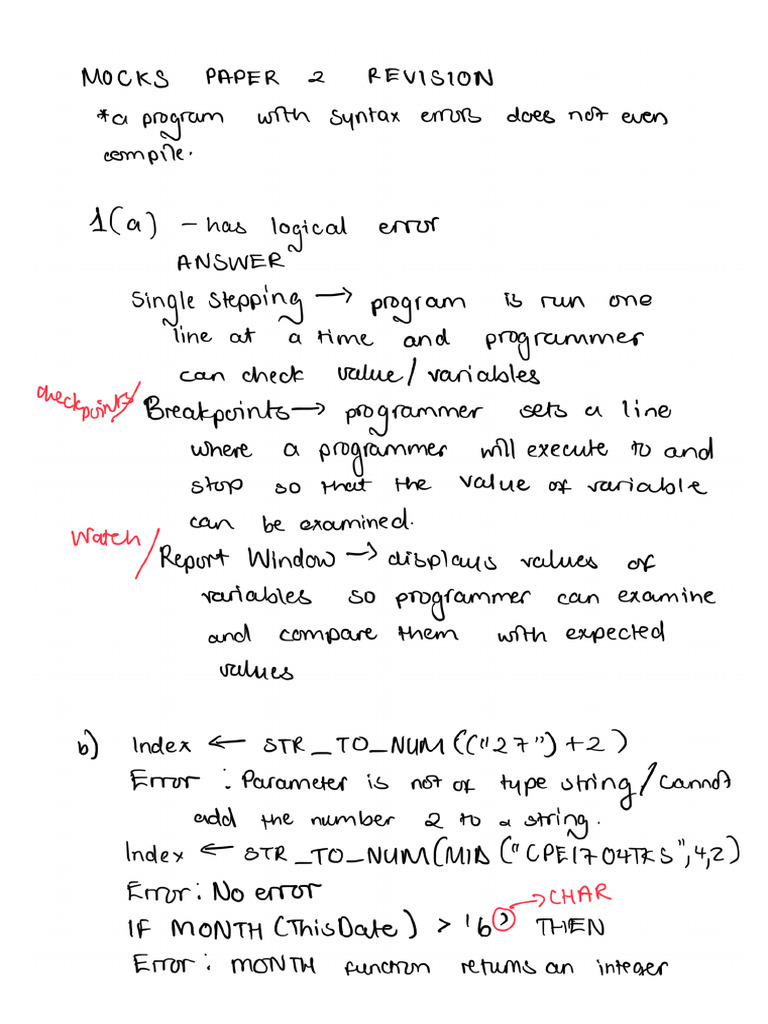 MOCKS PAPER 2 REVISION
*a program with syntax errors does not even
compile.
1(a) – has logical error
ANSWER
Single Stepping → program is run one
line at a time and programmer
can check value/variables
checkpoints/ Breakpoints → programmer sets a line
where a programmer will execute to and
stop so that the value of variable
can be examined.
Watch/ Report Window → displays values of
variables so programmer can examine
and compare them with expected
values
b) Index ← STR_TO_NUM(("27")+2)
Error : Parameter is not of type string/cannot
add the number 2 to a string.
Index ← STR_TO_NUM(MID("CPE1704TKS",4,2)
Error: No error
→ CHAR
IF MONTH(ThisDate) > '6' THEN
Error: MONTH function returns an integer